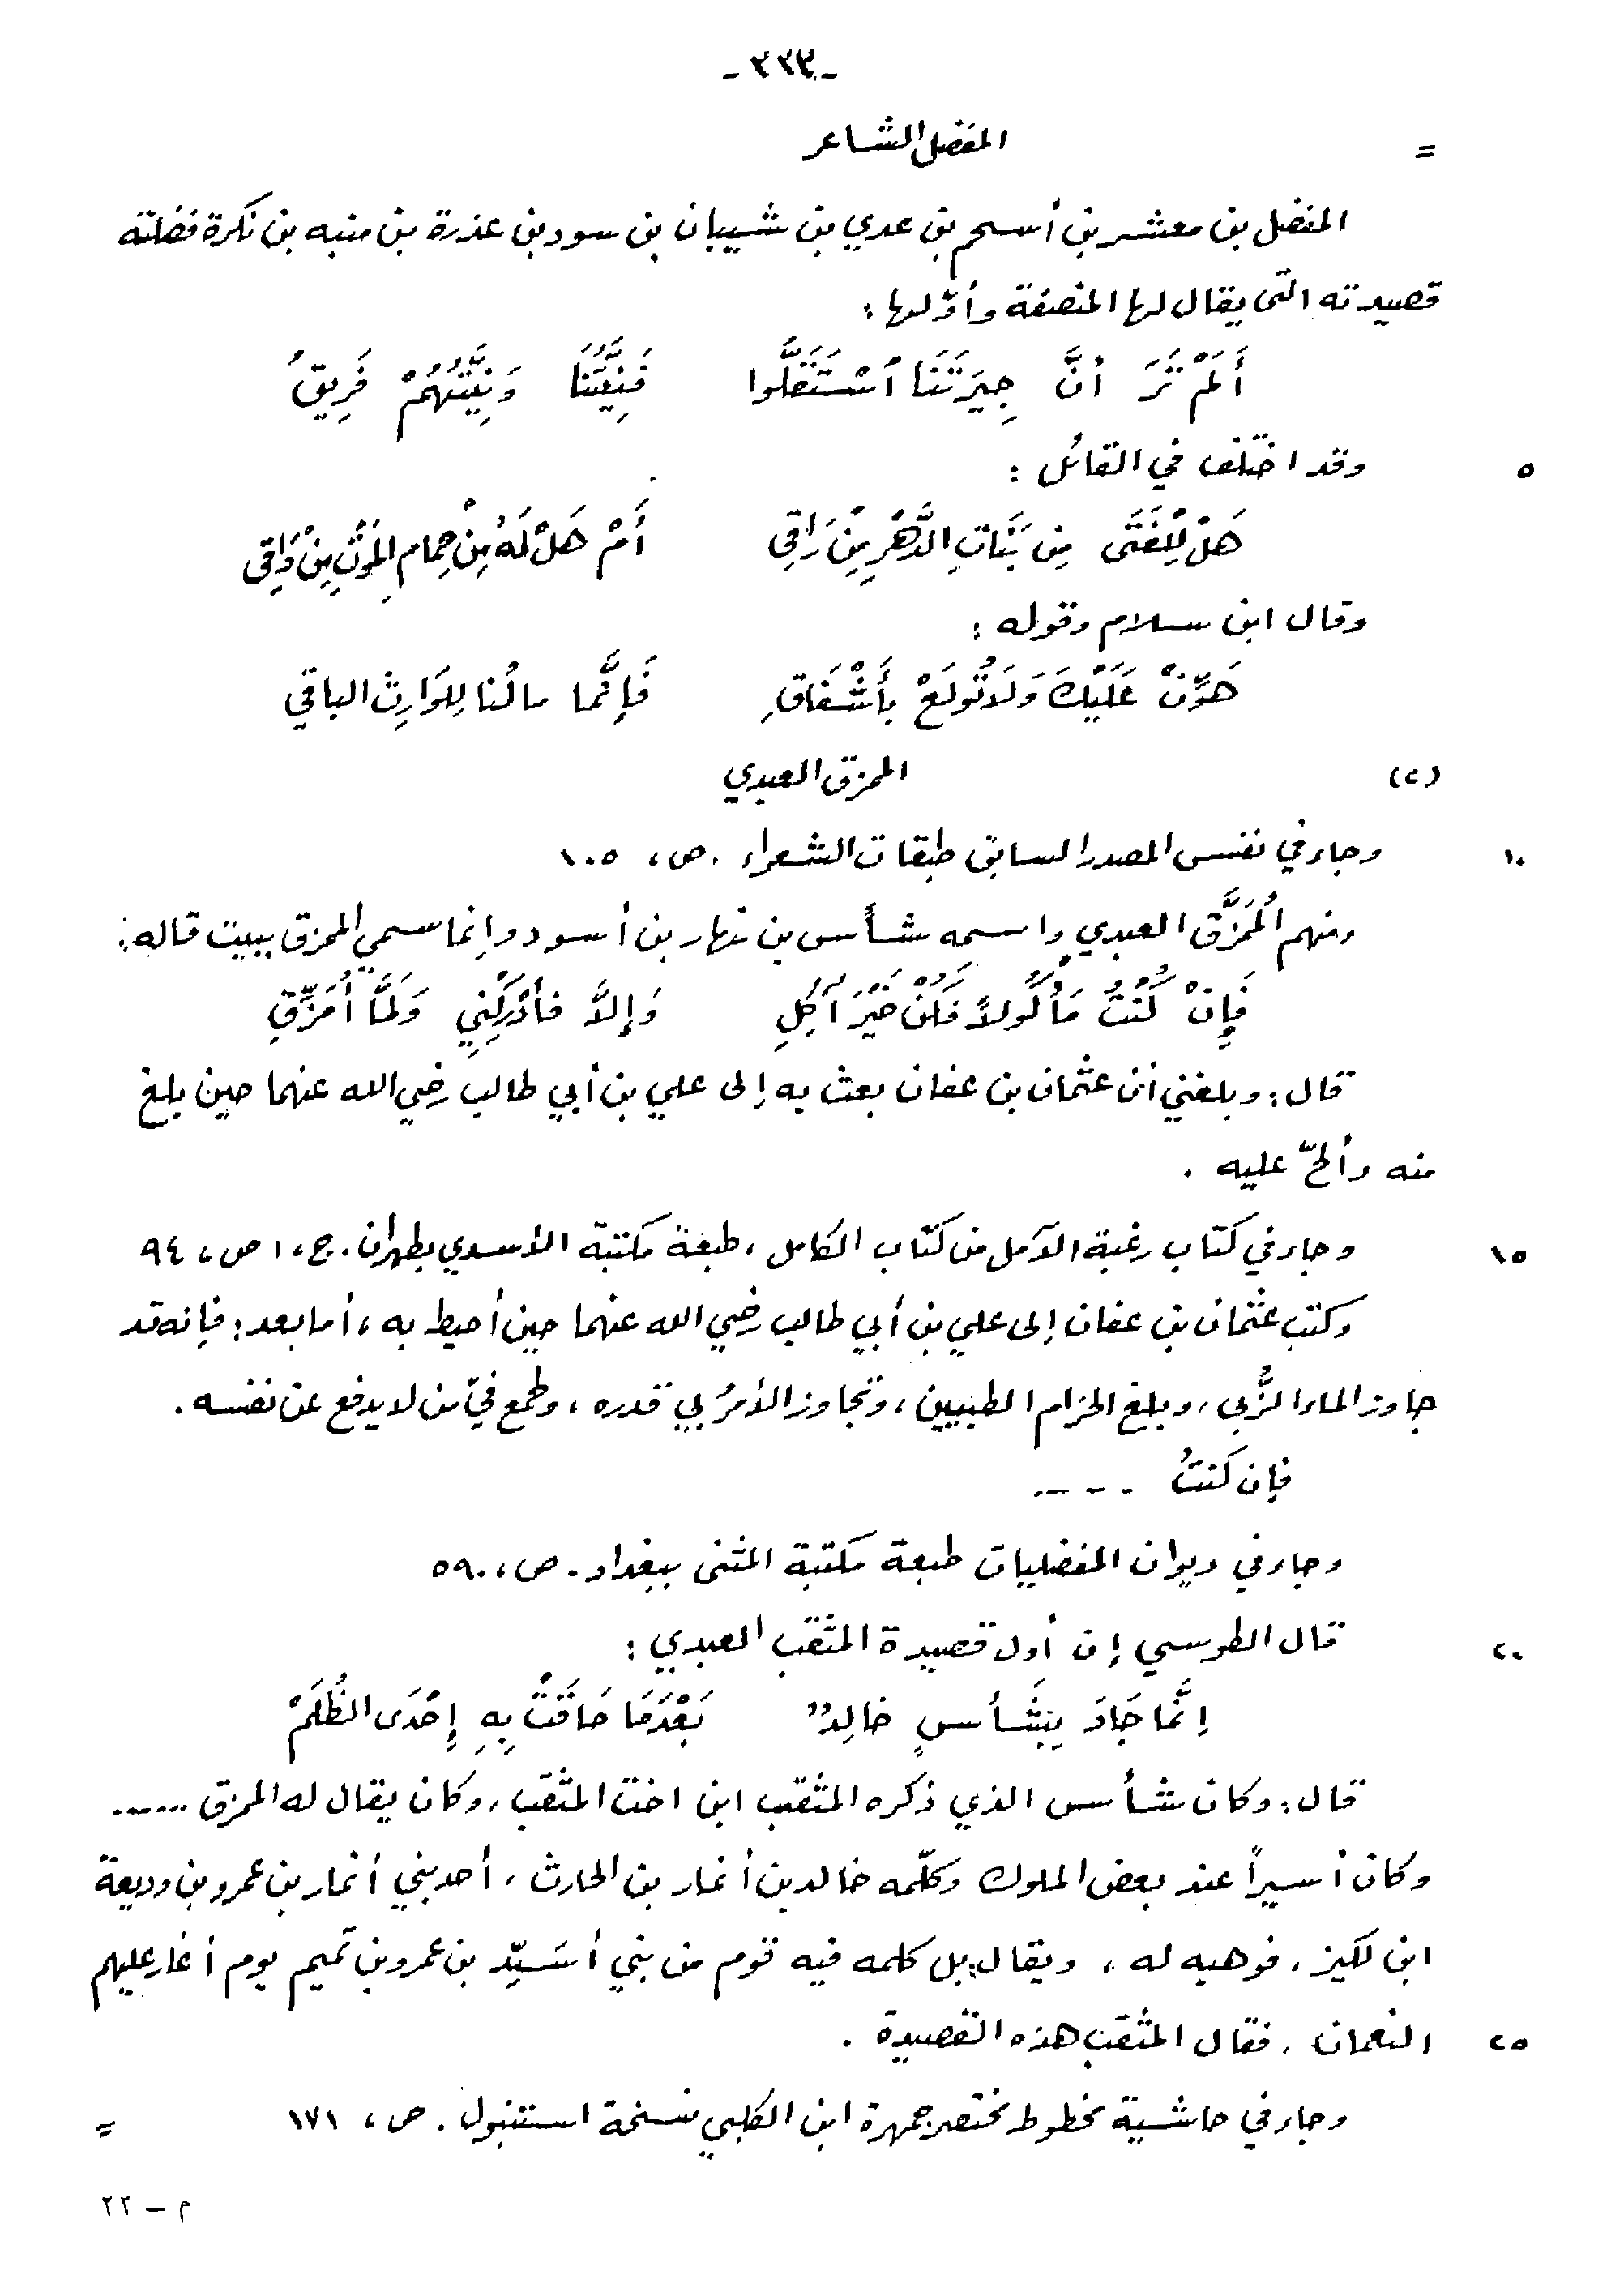 -٣٣٣-
= المفضل الشاعر
المفضل بن معشر بن أسحم بن عدي بن شيبان بن سود بن عذرة بن منبه بن نكرة فضلته
قصيدته التي يقال لها المنصفة وأوّلها:
أَلَمْ تَرَ أنَّ جِيرَتَنَا اُسْتَقَلُّوا فَنِيَّتُنَا وَنِيَّتُهُمْ فَرِيقُ
٥ وقد اختلف في القائل:
هَلْ لِلْفَتَى مِن بَنَاتِ الدَّهْرِ مِنْ رَاقِي أَمْ هَلْ لَهُ مِنْ حِمامِ المَوْتِ مِنْ وَاقِي
وقال ابن سلام وقوله:
هَوِّنْ عَلَيْكَ وَلَا تُولَعْ بِأَشْفَاقِ فَإِنَّما مالُنا لِلوَارِثِ الباقي
(٢) الممزق العبدي
١٠ وجاء في نفس المصدر السابق طبقات الشعراء. ص، ١٠٥
ومنهم اُلمُمَزَّق العبدي واسمه شأس بن نهار بن أسود وإنما سمي الممزق ببيت قاله:
فَإِنْ كُنْتُ مَأْكُولاً فَكُنْ خَيْرَ آكِلِ وَإِلاَّ فَأَدْرِكْنِي وَلَمَّا أُمَزَّقِ
قال: وبلغني أن عثمان بن عفان بعث به إلى علي بن أبي طالب رضي الله عنهما حين بلغ
منه وألحّ عليه.
١٥ وجاء في كتاب رغبة الآمل من كتاب الكامل، طبعة مكتبة الأسدي بطهران. ج، ١ ص، ٩٤
وكتب عثمان بن عفان إلى علي بن أبي طالب رضي الله عنهما حين أحيط به، أما بعد: فإنه قد
جاوز الماء الزُّبى، وبلغ الحزام الطبيين، وتجاوز الأمرُ بي قدره، وطمع فيّ من لا يدفع عن نفسه.
فإن كنتُ -----
وجاء في ديوان المفضليات طبعة مكتبة المثنى ببغداد. ص، ٥٩٠
٢٠ قال الطوسي إن أول قصيدة المثقب العبدي:
اِنَّما جَادَ بِشَأسٍ خالِدٌ بَعْدَمَا حَاقَتْ بِهِ إِحْدَى الظُلَمْ
قال: وكان شأس الذي ذكره المثقب ابن اخت المثقب، وكان يقال له الممزق ......
وكان أسيراً عند بعض الملوك وكلّمه خالد بن أنمار بن الحارث، أحد بني أنمار بن عمرو بن وديعة
ابن لكيز، فوهبه له، ويقال: بل كلمه فيه قوم من بني أسَيِّد بن عمرو بن تميم يوم أغار عليهم
٢٥ النعمان، فقال المثقب هذه القصيدة.
وجاء في حاشية مخطوط مختصر جمهرة ابن الكلبي نسخة استنبول. ص، ١٧١ =
م - ٢٢